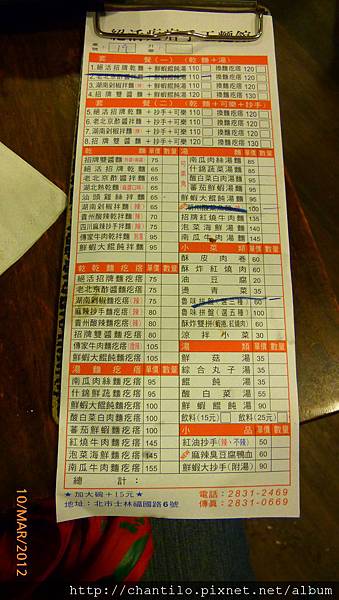 套 餐 (一) (乾麵+湯)
1.絕活招牌乾麵 +鮮蝦餛飩湯 110 換麵疙瘩 120
2.老北京酢醬麵 +鮮蝦餛飩湯 110 換麵疙瘩 120
3.湖南剁椒拌麵 +鮮蝦餛飩湯 110 換麵疙瘩 120
4.招牌雙醬麵 +鮮蝦餛飩湯 120 換麵疙瘩 130
套 餐 (二) (乾麵+可樂+抄手)
5.絕活招牌乾麵 +抄手+可樂 110 換麵疙瘩 120
6.老北京酢醬麵 +抄手+可樂 110 換麵疙瘩 120
7.湖南剁椒拌麵 +抄手+可樂 110 換麵疙瘩 120
8.招牌雙醬麵 +抄手+可樂 120 換麵疙瘩 130
乾 麵 單價 數量
招牌雙醬麵 75
絕活招牌乾麵 65
老北京酢醬麵 65
湖北熱乾麵 65
汕頭雞絲拌麵 65
湖南剁椒拌麵 (辣) 65
貴州酸辣拌麵 (辣) 70
四川麻辣拌麵 (辣) 75
傳家牛肉乾拌麵 90
鮮蝦大餛飩拌麵 90
湯 麵 單價 數量
南瓜肉絲湯麵 85
什錦鮮蔬湯麵 85
酸白菜白肉湯麵 90
蕃茄鮮蝦湯麵 90
鮮蝦大餛飩湯麵 90
100
招牌紅燒牛肉麵 135
泡菜海鮮湯麵 145
南瓜牛肉湯麵 145
小 菜 類
酥皮肉卷 60
酥炸紅燒肉 60
油豆腐 20
燙青菜 35
滷味拼盤(選三種) 60
滷味拼盤(選五種) 100
酥炸雙拼(蝦捲,紅燒肉) 60
涼拌小菜 30
乾乾麵疙瘩 單價 數量
絕活招牌麵疙瘩 75
老北京酢醬麵疙瘩 75
湖南剁椒麵疙瘩 (辣) 75
麻辣抄手麵疙瘩 (辣) 80
貴州酸辣麵疙瘩 (辣) 80
招牌雙醬麵疙瘩 85
傳家牛肉麵疙瘩 100
鮮蝦大餛飩麵疙瘩 100
湯 類 單價 數量
鮮菇湯 35
綜合丸子湯 35
餛飩湯 35
酸白菜湯 55
鮮蝦餛飩湯 60
飲料(15元) 飲料(25元)
湯麵疙瘩 單價 數量
南瓜肉絲麵疙瘩 95
什錦鮮蔬麵疙瘩 95
鮮蝦大餛飩麵疙瘩 100
酸白菜白肉麵疙瘩 100
蕃茄鮮蝦麵疙瘩 100
紅燒牛肉麵疙瘩 145
泡菜海鮮麵疙瘩 155
南瓜牛肉麵疙瘩 155
小 品 單價 數量
紅油抄手(辣、不辣) 50
NEW 麻辣臭豆腐鴨血 60
鮮蝦大抄手(附湯) 90
總 計：
★加大碗+15元★
地址：北市士林福國路6號
電話：2831-2469
傳真：2831-0669
10/MAR/2012
http://chantilo.pixnet.net/album